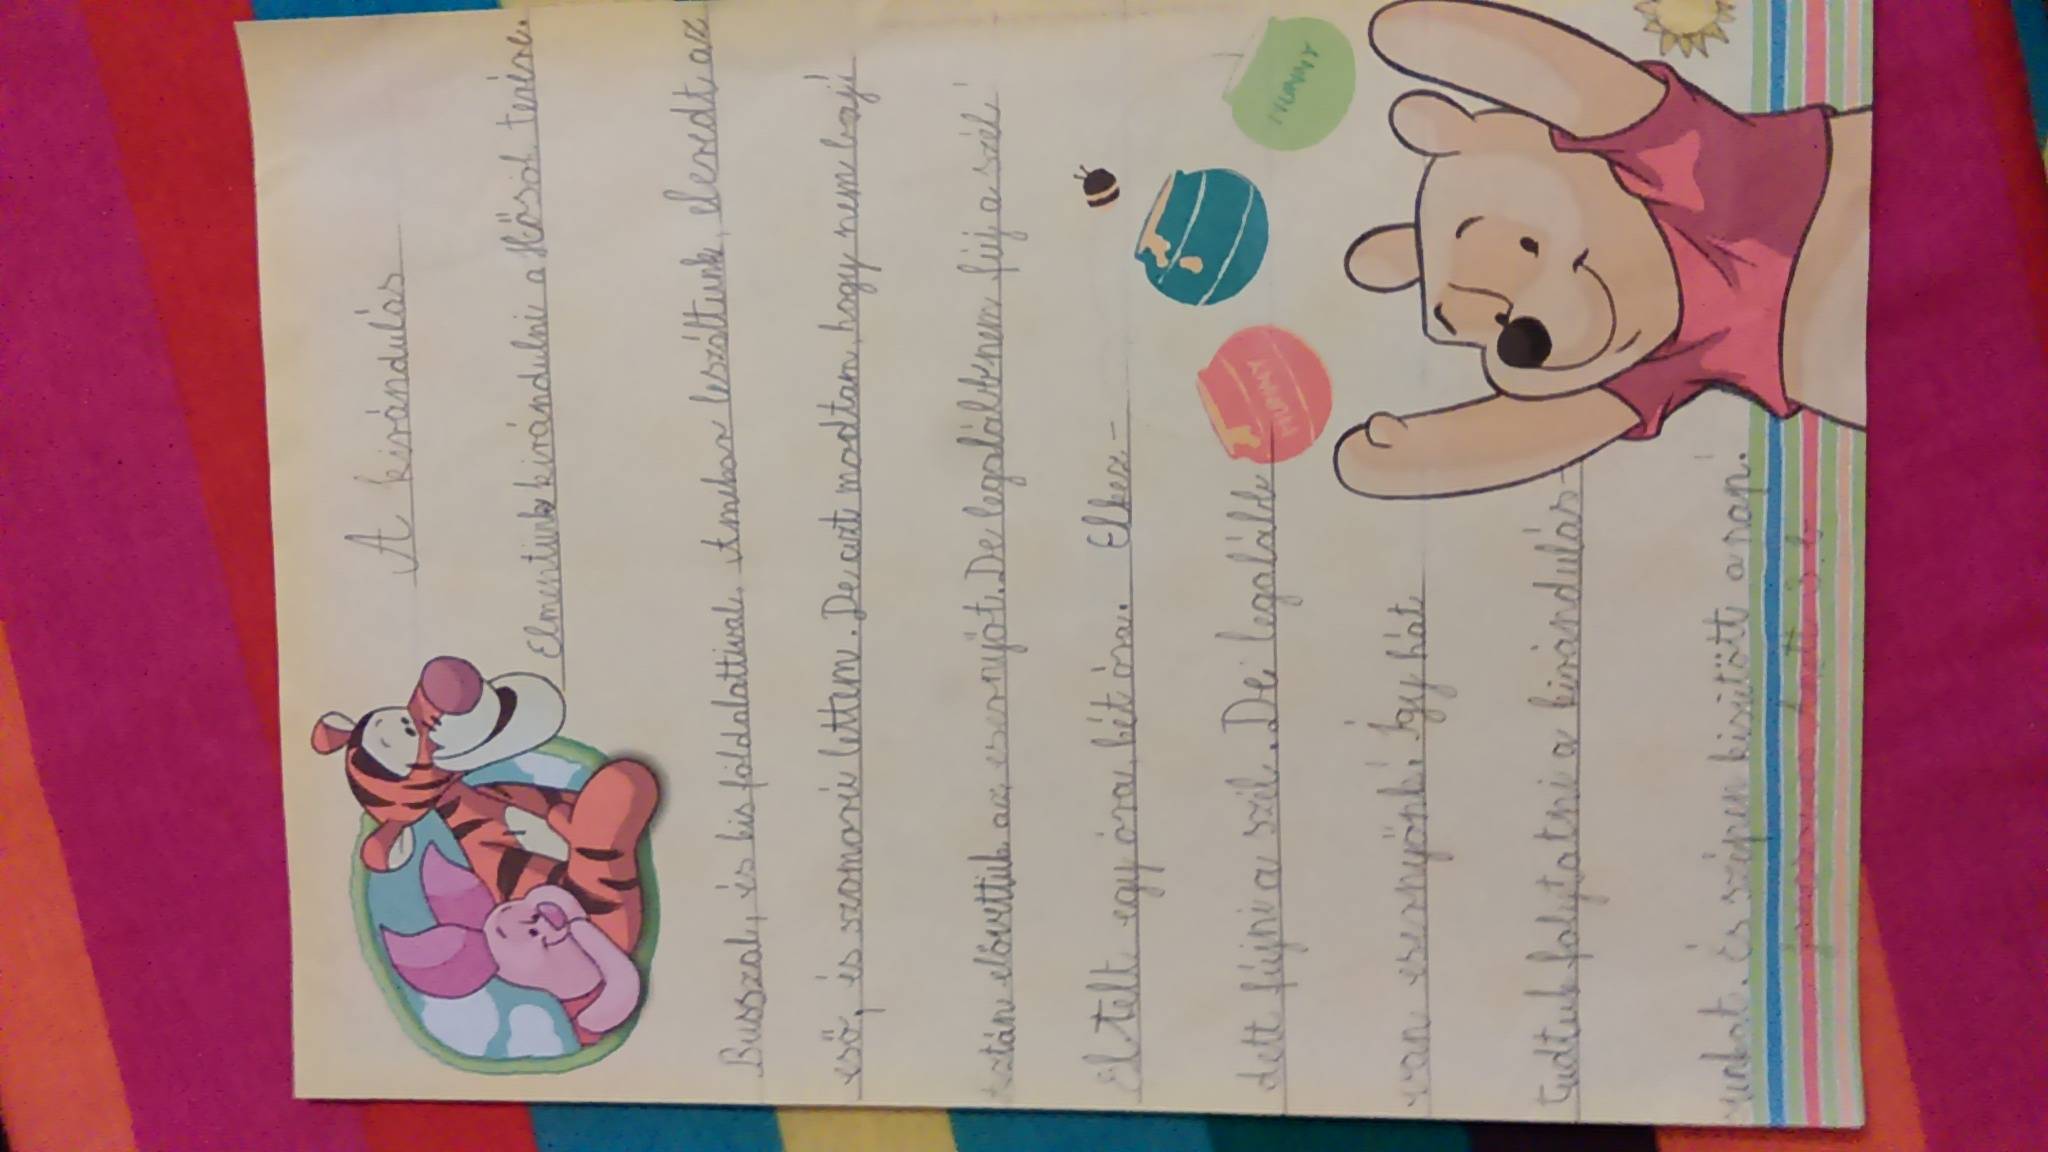 A kirándulás
Elmentünk kirándulni a Hősök terére.
Busszal, és kis földalattival. Amikor leszáltunk, eleredt az
eső, és szomorú lettem. De azt modtam, hogy nem baj!
Aztán elővettük az esernyőt. De legalább nem fúj a szél!
Eltelt egy óra, két óra. Elkez-
dett fújni a szél. De legalább
van esernyőnk! Így hát
tudtuk folytatni a kirándulás-
unkat. És szépen kisütött a nap!
HUNNY
HUNNY